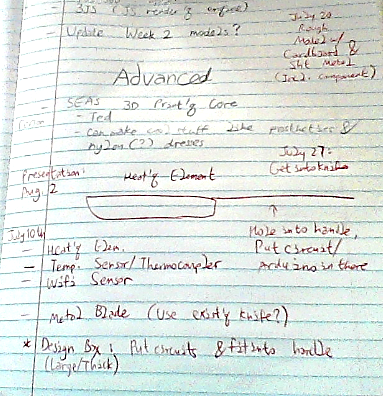 - 3JS (JS rendering engine)
- Update Week 2 models?
July 20
Rough
Model w/
Cardboard &
Sht Metal
(Incl. component)
Advanced
- SEAS 3D Print'g Core
- Ted
- can make cool stuff like prosthetics &
nylon (?) dresses
July 27:
Get into knife
Presentation:
Aug. 2
Heat'g Element
Hole into handle,
Put circuit/
arduino in there
July 10th
- Heat'g Elem.
- Temp. Sensor/Thermocoupler
- Wifi Sensor
- Metal Blade (Use exist'g knife?)
* Design Box: Put circuits & fit into handle
(Large/Thick)